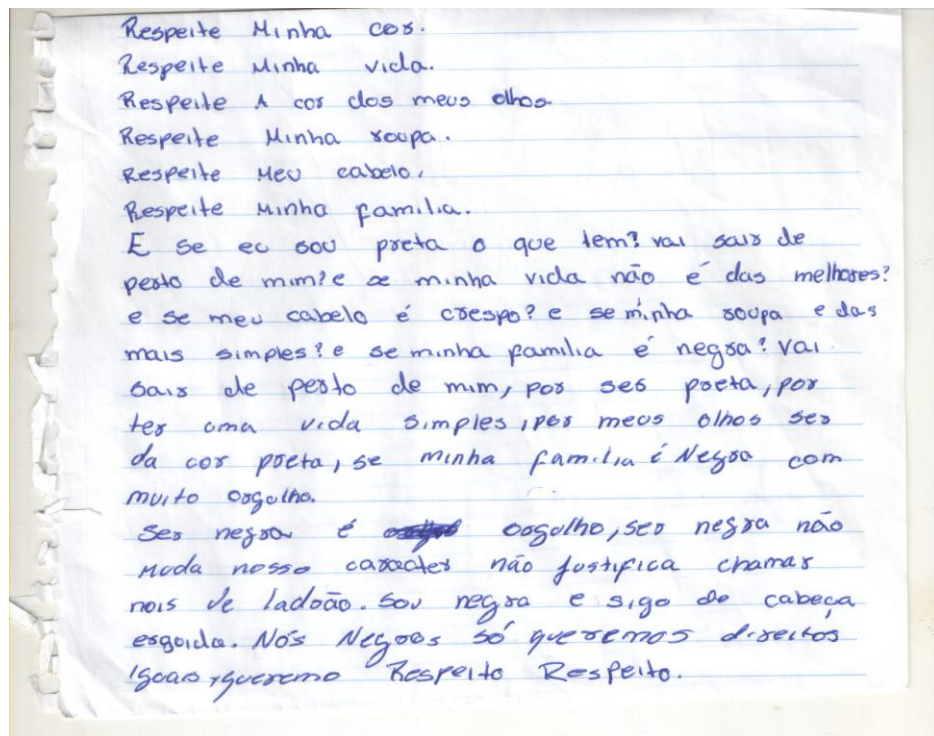 Respeite Minha cor.
Respeite Minha vida.
Respeite A cor dos meus olhos.
Respeite Minha roupa.
Respeite Meu cabelo.
Respeite Minha família.
E se eu sou preta o que tem? vai sair de
perto de mim? e se minha vida não é das melhores?
e se meu cabelo é crespo? e se minha roupa e das
mais simples? e se minha família é negra? Vai
sair de perto de mim, por ser preta, por
ter uma vida simples, por meus olhos ser
da cor preta, se minha família é Negra com
muito orgulho.
Ser negra é orgulho, ser negra não
Muda nosso caracter não justifica chamar
nois de ladrão. Sou negra e sigo de cabeça
erguida. Nós Negros só queremos direitos
iguais, queremo Respeito Respeito.